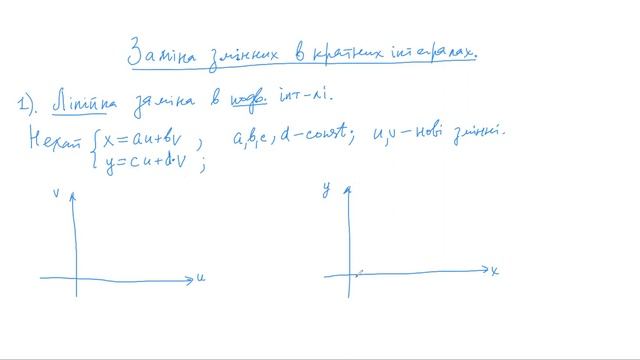 Заміна змінних в кратних інтегралах.
1). Лінійна заміна в подв. інт-лі.
Нехай { x = au + bv ,   a, b, c, d – const;   u, v – нові змінні.
y = cu + d·v ;
v
u
y
x